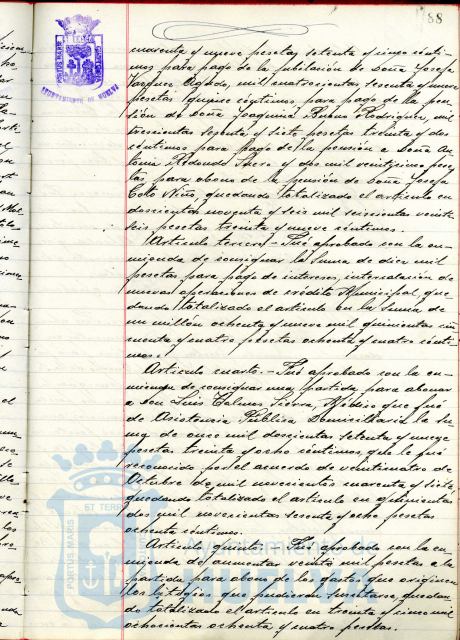 88
AYUNTAMIENTO DE HUELVA
cuarenta y nueve pesetas setenta y cinco cénti-
mos para pago de la jubilación de Doña Josefa
Vázquez Agudo, mil cuatrocientas sesenta y nueve
pesetas quince céntimos, para pago de la pen-
sión de Doña Joaquina Bueno Rodríguez, mil
trescientas sesenta y siete pesetas treinta y dos
céntimos para pago de la pensión a Doña An-
tonia Redondo y dos mil veinticinco pese-
tas para abono de la pensión de Doña Josefa
Cotto Niño, quedando totalizado el artículo en
doscientas noventa y seis mil seiscientas veinti-
seis pesetas treinta y nueve céntimos.
Artículo tercero.- Fué aprobado con la en-
mienda de consignar la suma de diez mil
pesetas para pago de intereses, intercalación de
nuevas operaciones de crédito Municipal, que-
dando totalizado el artículo en la suma de
un millón ochenta y nueve mil quinientas cin-
cuenta y cuatro pesetas ochenta y cuatro cénti-
mos.-
Artículo cuarto.- Fué aprobado con la en-
mienda de consignar una partida, para abonar
a Don Luis Calmes Sierra, Médico que fué
de Asistencia Pública Domiciliaria la su-
ma de once mil doscientas setenta y nueve
pesetas treinta y ocho céntimos, que le fué
reconocido por el acuerdo de veinticuatro de
Octubre de mil novecientos cuarenta y siete,
quedando totalizado el artículo en quinientas
dos mil novecientas sesenta y ocho pesetas
ochenta céntimos.
Artículo quinto.- Fué aprobado con la en-
mienda de aumentar veinte mil pesetas a la
partida para abono de los gastos que originen
los litigios que pudieran suscitarse, quedan-
do totalizado el artículo en treinta y cinco mil
ochocientas ochenta y cuatro pesetas.
Ayuntamiento de
HUELVA
PORTUS MARIS
ET TERRE